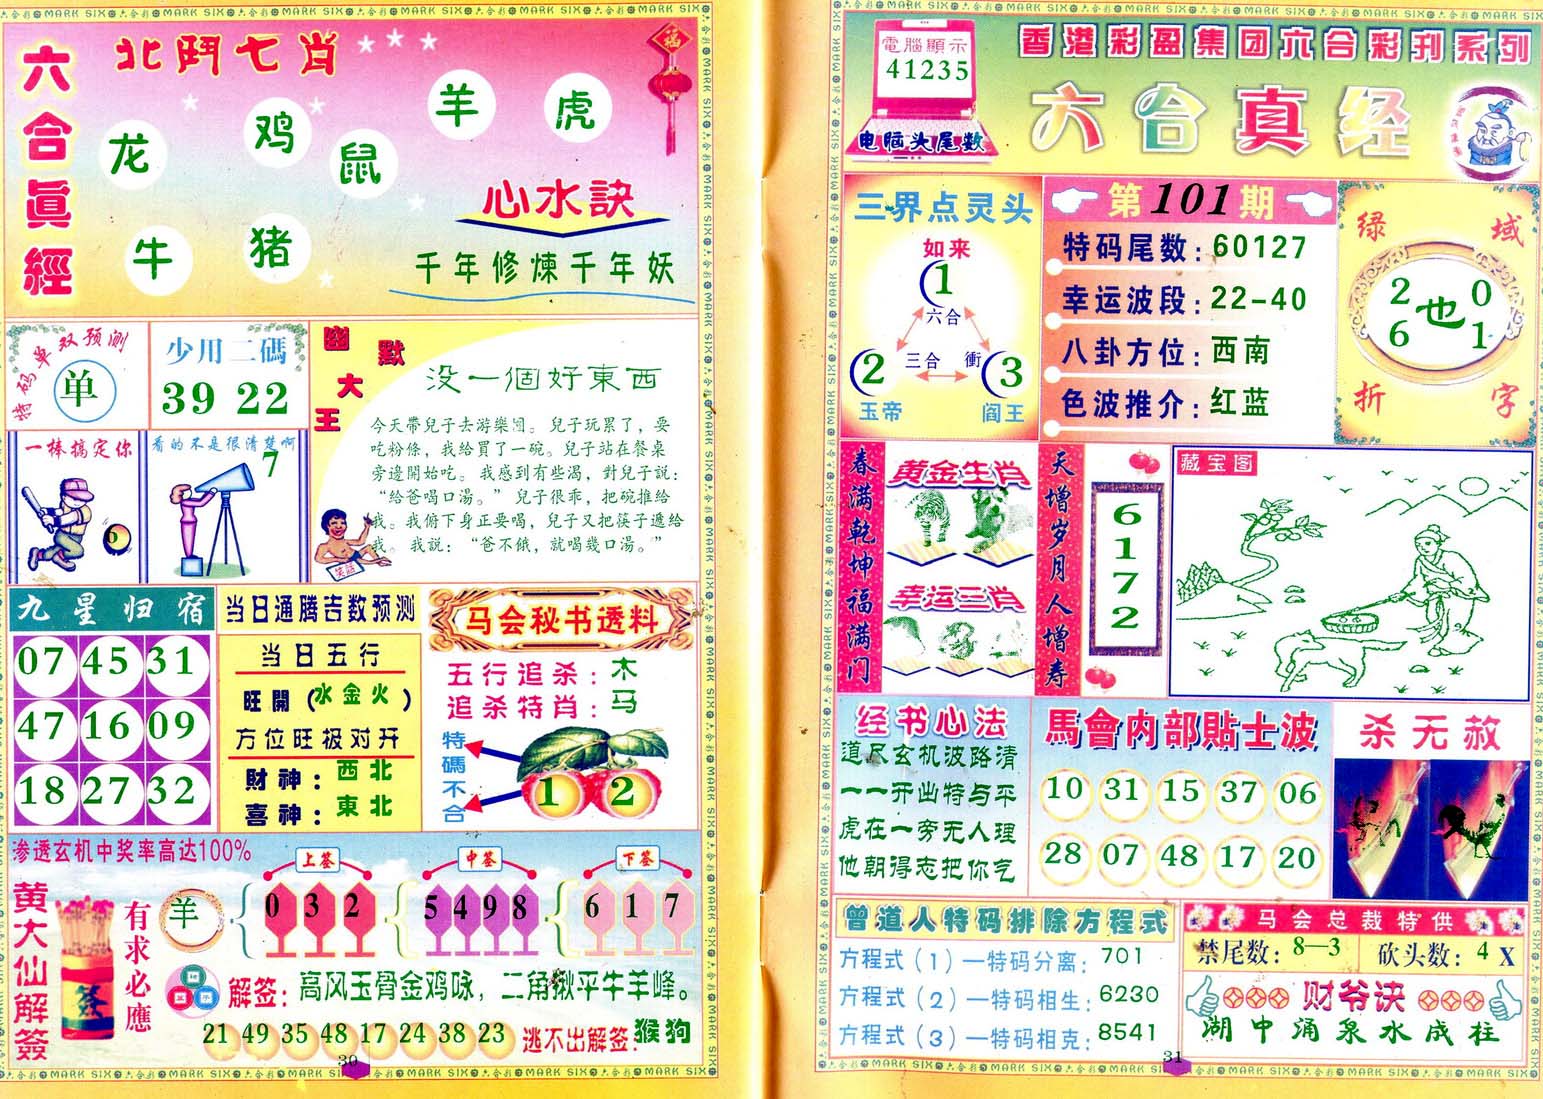 六合眞經
北鬥七肖
龙
鸡
鼠
羊
虎
牛
猪
心水訣
千年修煉千年妖
特码单双预测
单
少用二碼
39 22
一棒搞定你
6
看的不是很清楚啊
7
幽默大王
没一個好東西
今天帶兒子去游樂園。兒子玩累了，要
吃粉條，我給買了一碗。兒子站在餐桌
旁邊開始吃。我感到有些渴，對兒子說：
“給爸喝口湯。”兒子很乖，把碗推给
我。我俯下身正要喝，兒子又把筷子遞给
我。我說：“爸不餓，就喝幾口湯。”
笑話
九星归宿
07 45 31
47 16 09
18 27 32
当日通腾吉数预测
当日五行
旺開（水金火）
方位旺极对开
財神：西北
喜神：東北
马会秘书透料
五行追杀：木
追杀特肖：马
特碼不合
1 2
渗透玄机中奖率高达100%
黄大仙解簽
有求必應
羊
上签
0 3 2
中签
5 4 9 8
下签
6 1 7
解签：高风玉骨金鸡咏，二角揪平牛羊峰。
21 49 35 48 17 24 38 23
逃不出解签：猴狗
30
電腦顯示
41235
电脑头尾数
香港彩盈集团六合彩刊系列
六合真经
三界点灵头
如来
1
六合
三合
衝
2
3
玉帝
阎王
第101期
特码尾数：60127
幸运波段：22-40
八卦方位：西南
色波推介：红蓝
绿域
2 0
也
6 1
折字
春满乾坤福满门
黄金生肖
幸运三肖
天增岁月人增寿
6172
藏宝图
经书心法
道尽玄机波路清
一一开出特与平
虎在一旁无人理
他朝得志把你乞
馬會内部貼士波
10 31 15 37 06
28 07 48 17 20
杀无赦
曾道人特码排除方程式
方程式（1）—特码分离：701
方程式（2）—特码相生：6230
方程式（3）—特码相克：8541
马会总裁特供
禁尾数：8—3
砍头数：4X
财爷决
湖中涌泉水成柱
31